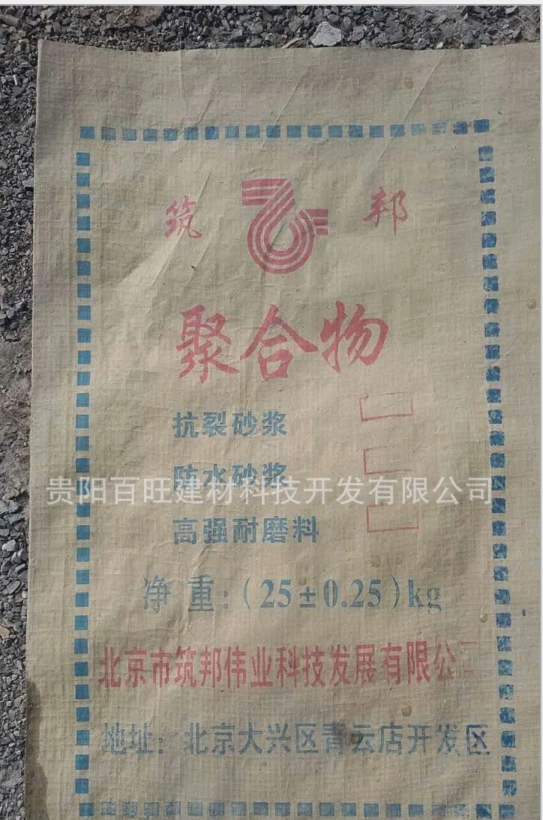 筑 邦
聚合物
抗裂砂浆
防水砂浆
贵阳百旺建材科技开发有限公司
高强耐磨料
净 重：（25±0.25）kg
北京市筑邦伟业科技发展有限公
地址：北京大兴区青云店开发区